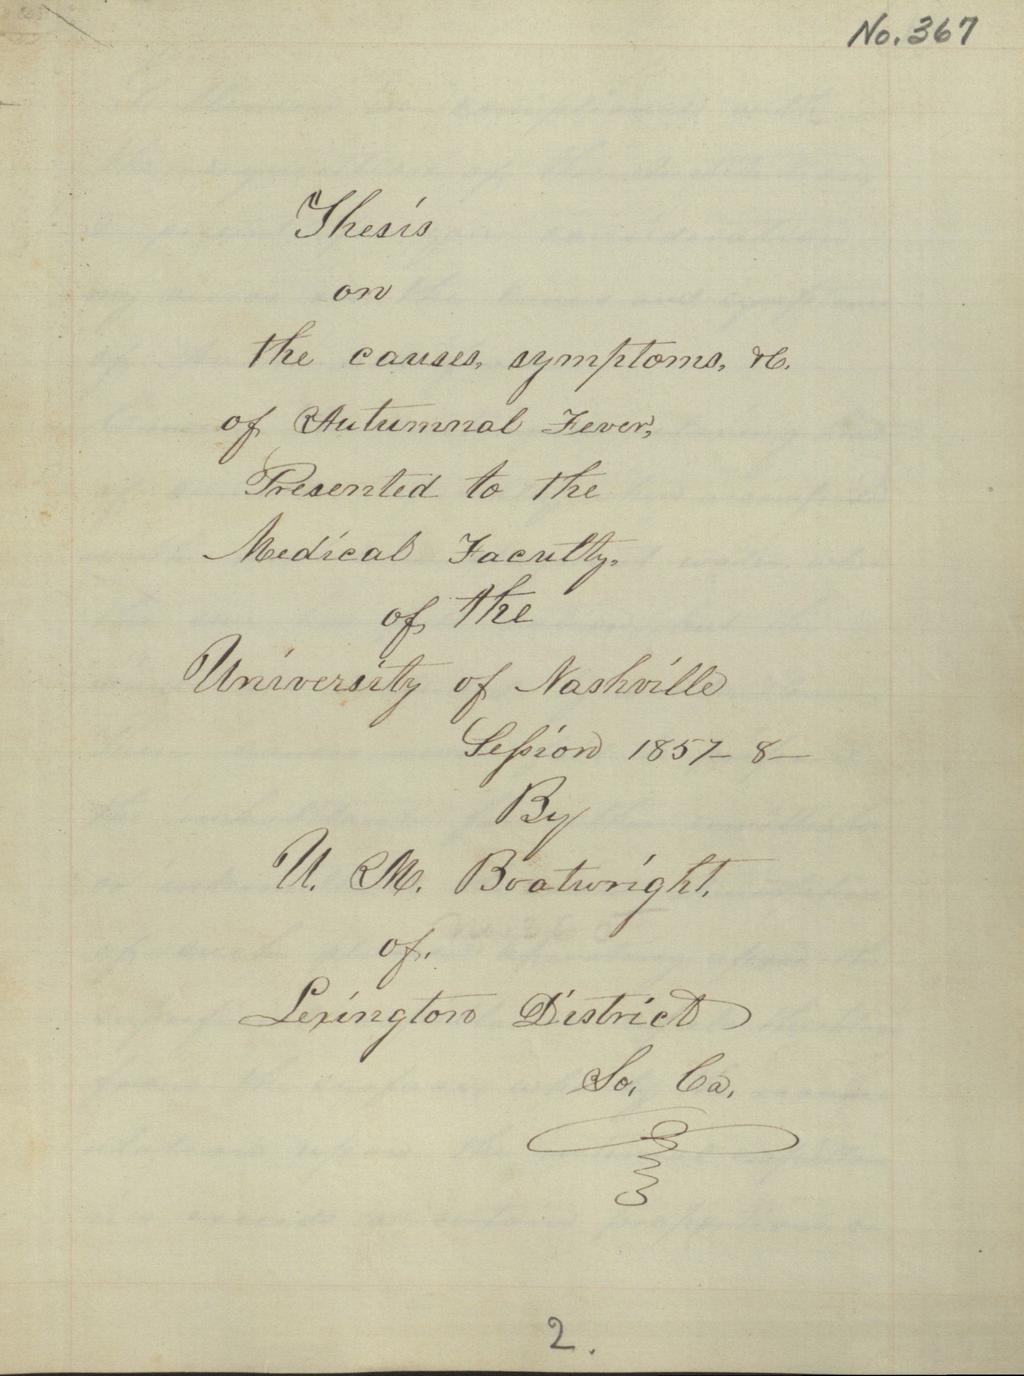 No. 367
Thesis
on
the causes, symptoms, &c.
of Autumnal Fever,
Presented to the
Medical Faculty,
of the
University of Nashville
Session 1857-8-
By
U. M. Boatwright.
of.
Lexington District
So. Ca.
2.